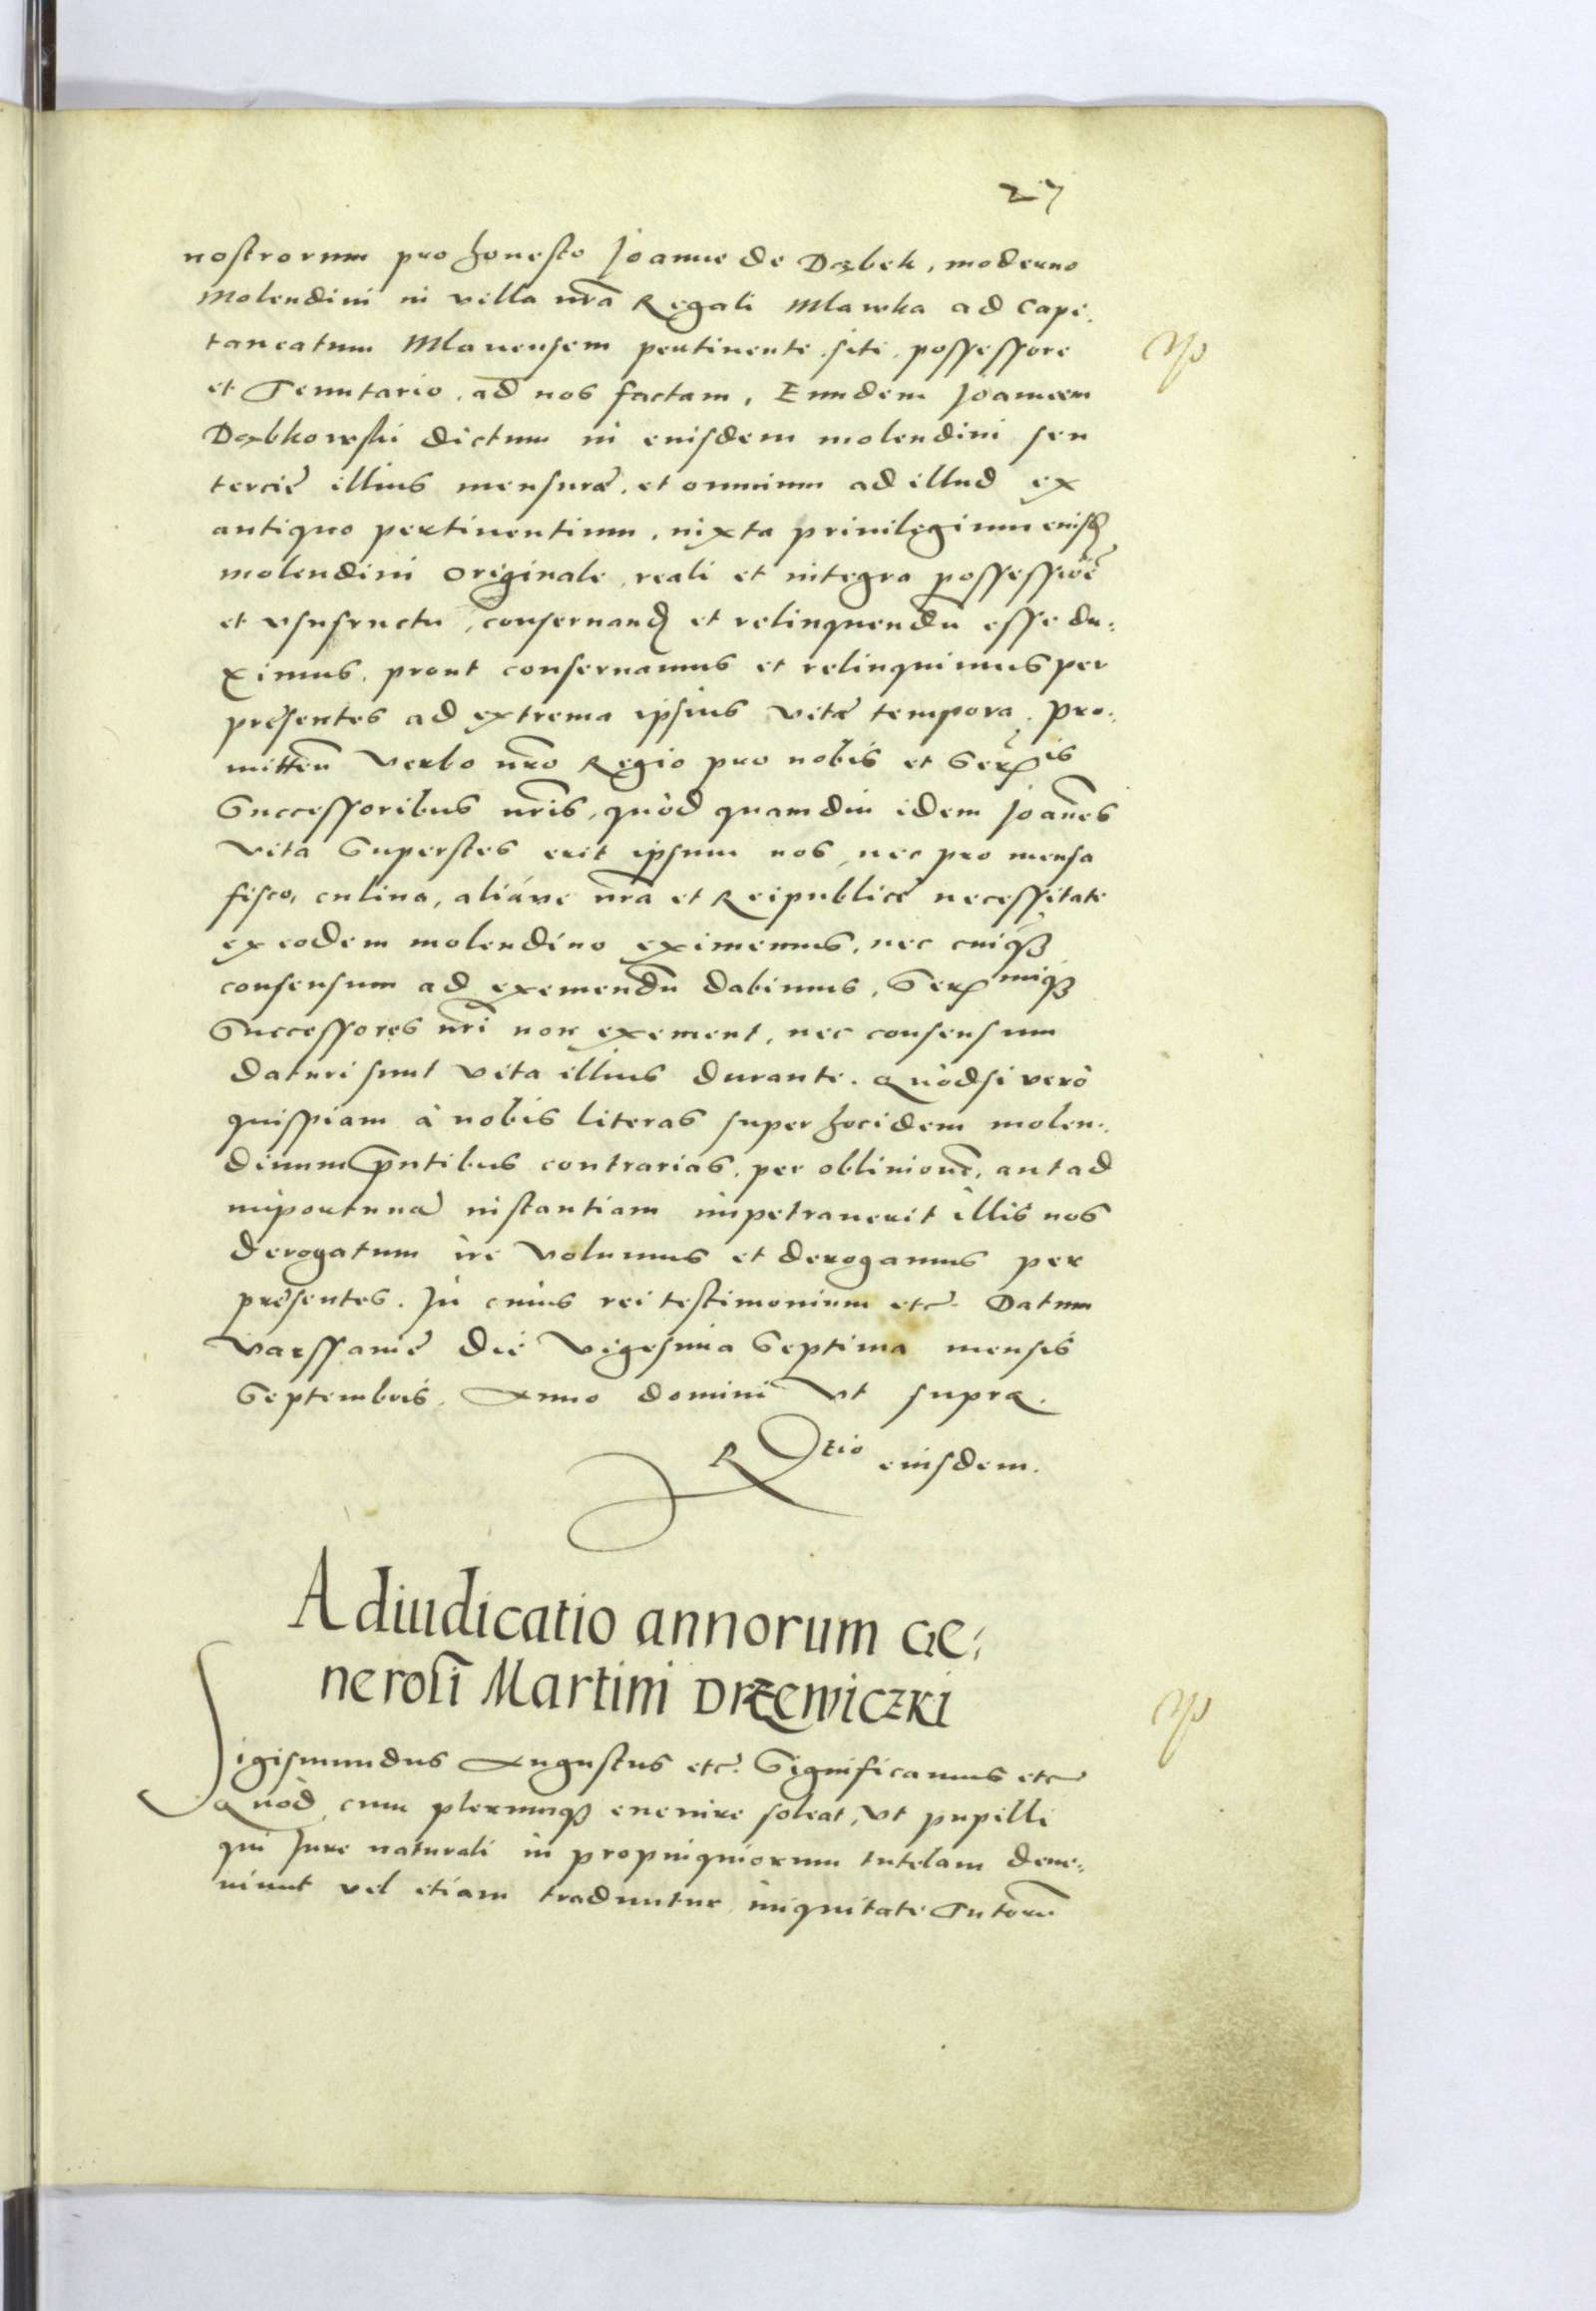 27
nostrorum pro honesto Joanne de Dąbek, moderno
Molendini in villa nr̃a Regali Mlawka ad Capi.
taneatum Mlauensem pertinente siti, possessore
et Tenutario, ad nos factam, Eundem Joannem
Dąbkowski dictum in eiusdem molendini seu
tercię illius mensuræ, et omnium ad illud ex
antiquo pertinentium, iuxta priuilegium eiusd
molendini originale, reali et integra possessiõe
et vsufructu, conseruand et relinquendũ esse du:
ximus, prout conseruamus et relinquimus per
pręsentes ad extrema ipsius vitæ tempora. Pro:
mitteñ Verbo nr̃o Regio pro nobis et Serꝫis
Successoribus nr̃is, quòd quamdiu idem Joañes
vita Superstes erit ipsum nos, nec pro mensa
fisco, culina, aliáue nr̃a et Reipublicę necessitate
ex eodem molendino eximemus, nec cuiqꝫ
consensum ad exemendũ dabimus, Sermiqꝫ
Successores nr̃i non exement, nec consensum
daturi sunt vita illius durante. Quòdsi verò
quispiam à nobis literas super hocidem molen:
dinum p̃ntibus contrarias, per obliuionẽ, aut ad
importunã instantiam impetrauerit illis nos
derogatum ire volumus et derogamus per
pręsentes. In cuius rei testimonium etc. Datum
Varssauię die Vigesima Septima mensis
Septembris. Anno domini Vt supra.
Rtio eiusdem.
Adiudicatio annorum Ge:
nerosi Martini Drzewiczki
Sigismundus Augustus etc. Significamus etc
Quòd cum plerumqꝫ euenire soleat, vt pupilli
qui Jure naturali in propinquiorum tutelam deue:
niunt vel etiam traduntur, iniquitate Tutorũ